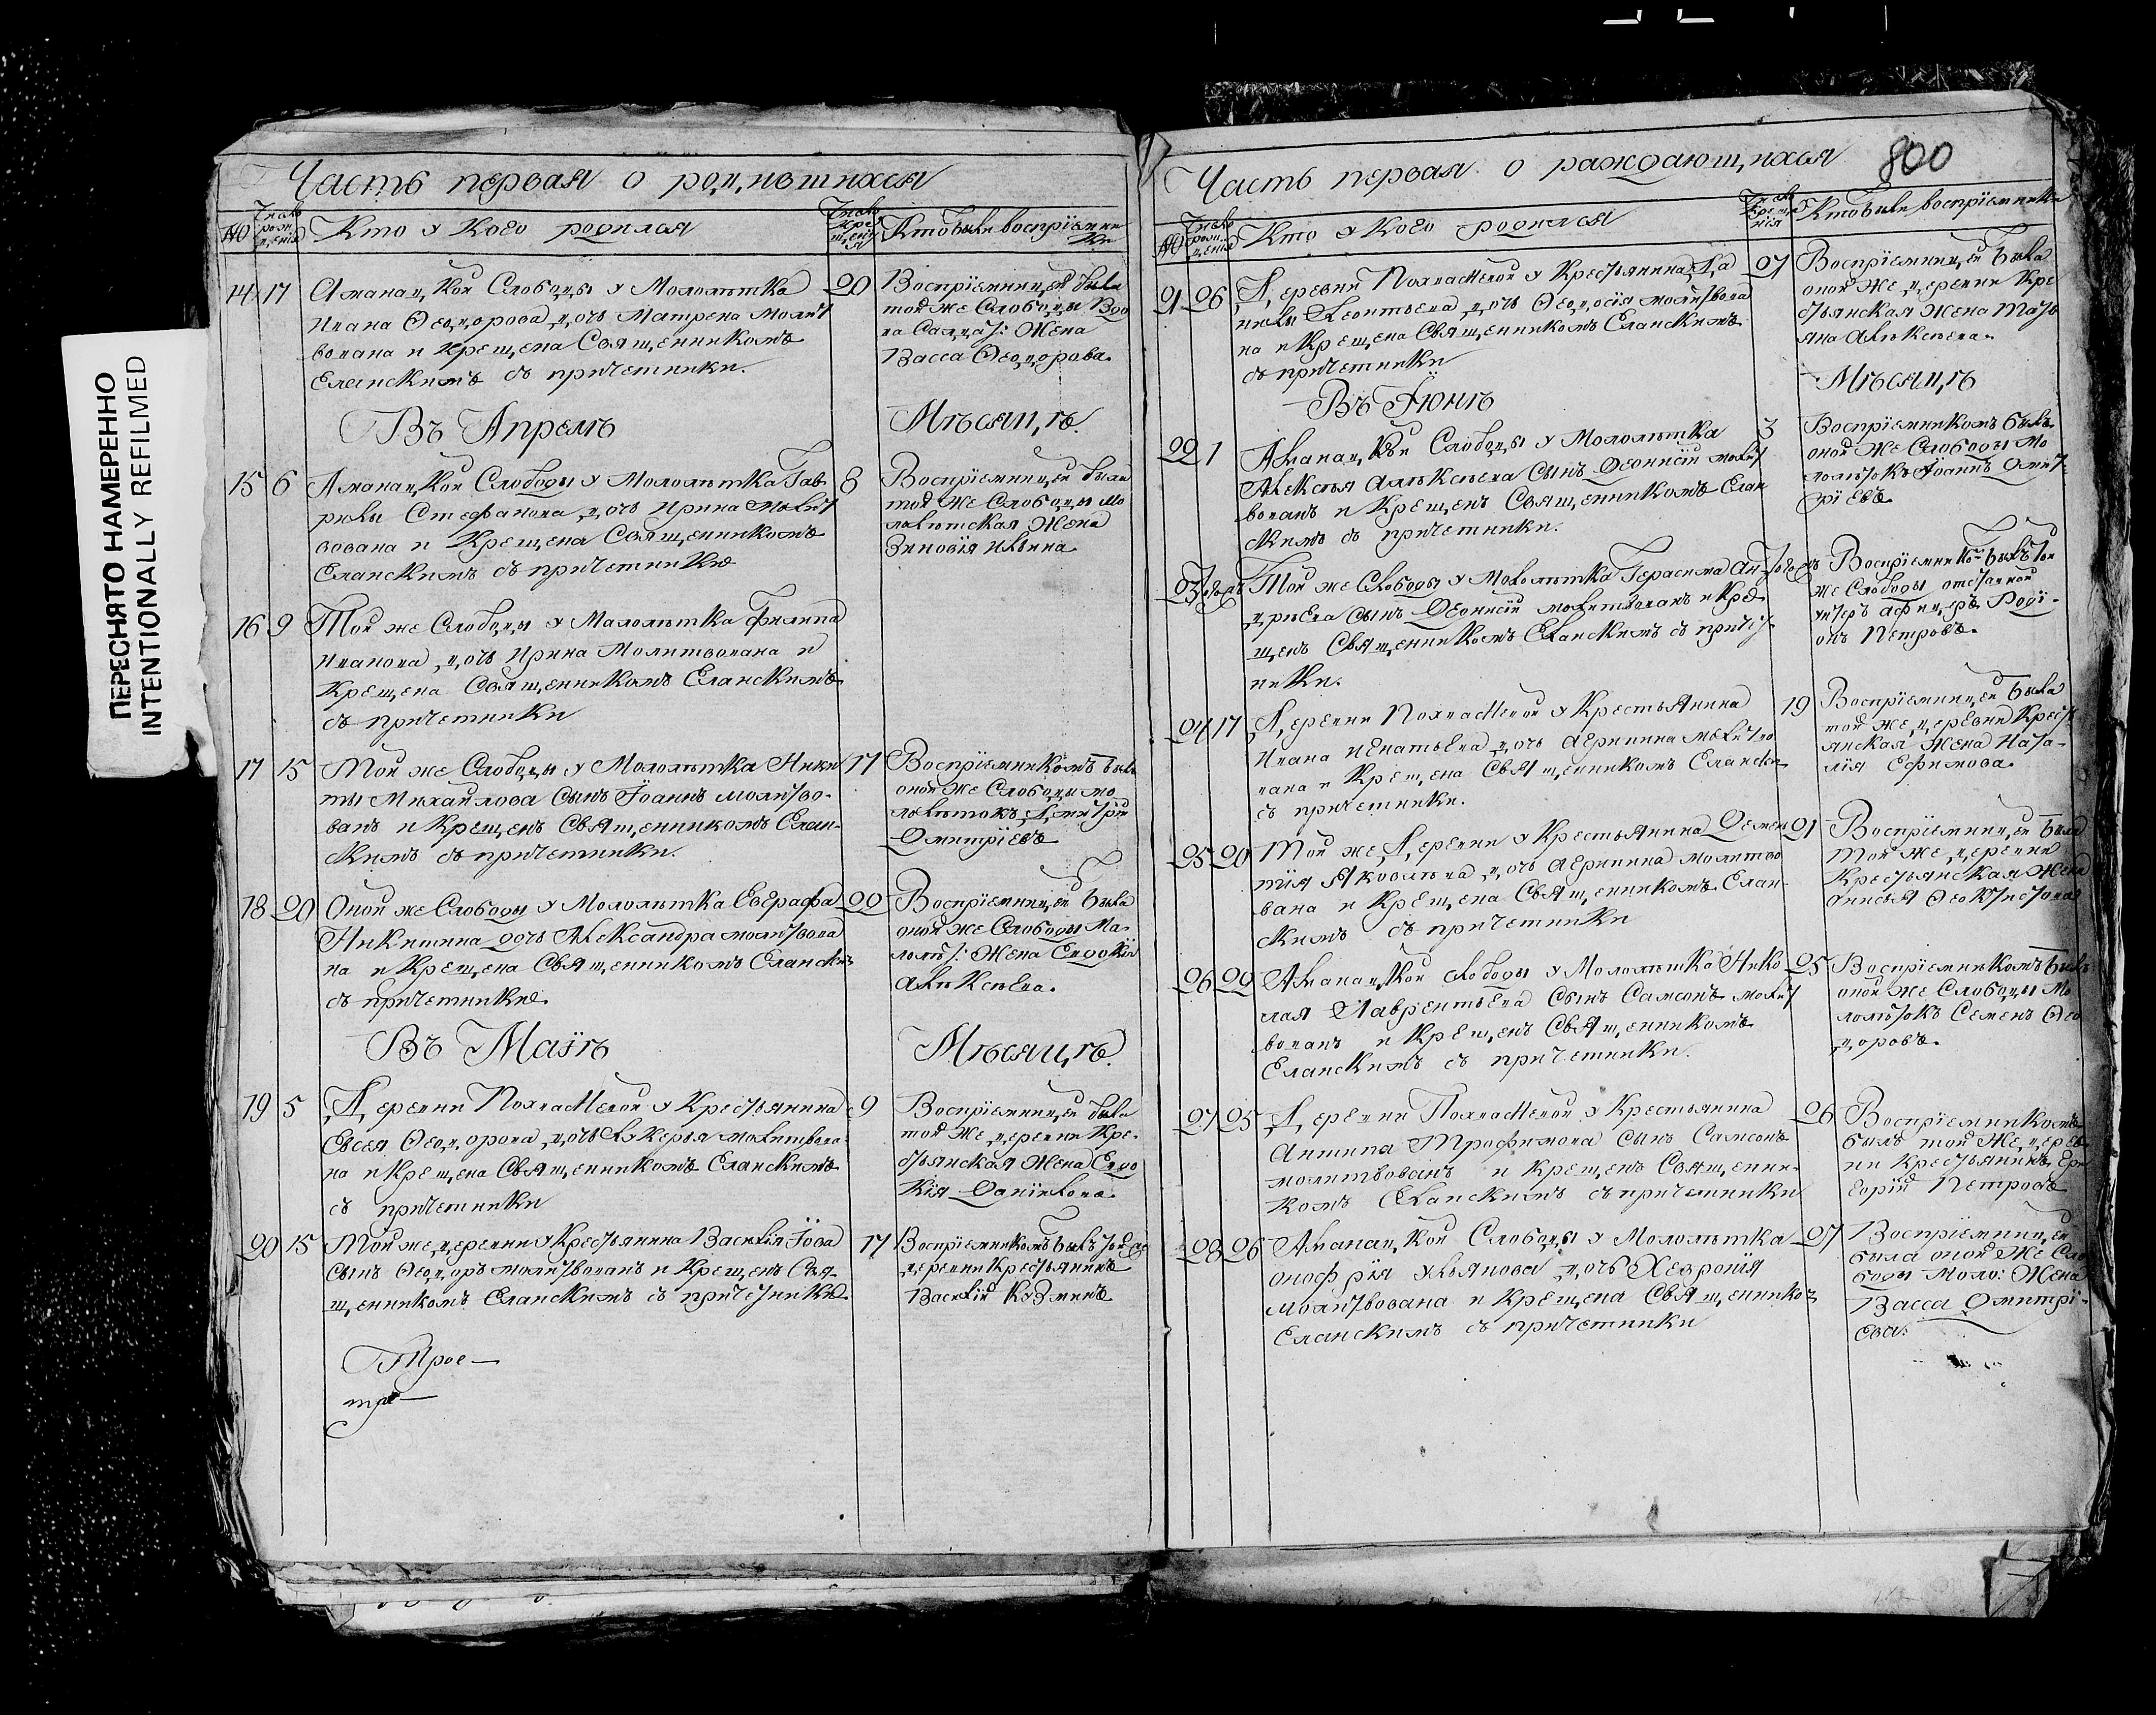 ПЕРЕСНЯТО НАМЕРЕННО
INTENTIONALLY REFILMED
Часть первая о родившихся
№
Кто у кого родился
Кто были восприемни
ки
14 17 Аманацкой Слободы у Малолѣтка
Ивана Ѳеодорова дочь Матрена молит
вована и крещена Священникомъ
Еланскимъ съ причетники.
20 Восприемницей была
той же Слободы
Жена
Васса Ѳеодорова.
Въ Апрелѣ
Мѣсяцѣ.
15 6 Аманацкой Слободы у Молольтка Гав
рилы Стефанова дочь Ирина молит
вована и Крещена Священникомъ
Еланскимъ съ причетники
8 Восприемницей была
той же Слободы мо
лолѣтская Жена
Зиновія Ильина
16 9 Той же Слободы у Малолѣтка Филипа
Иванова дочь Ирина Молитвована и
Крещена Священникомъ Еланскимъ
съ причетники
17 15 Той же Слободы у Молольтка Ники
ты Михайлова сынъ Іоаннъ молитво-
ванъ и Крещенъ Священникомъ Елан-
скимъ съ причетники.
17 Восприемникомъ былъ
оной же Слободы мо
лолѣтокъ Дмитрій
Дмитріевъ
18 20 Оной же Слободы у Молольтка Евграфа
Никитина дочь Александра молитвова
на и Крещена Священникомъ Еланскимъ
съ причетники.
22 Восприемницей была
оной же Слободы Ма-
лолѣт: Жена Евдокія
Алѣксѣева.
Въ Маіѣ
Мѣсяцѣ.
19 5 Деревни Похпастевой у Крестьянина
Евсея Ѳеодорова дочь Лукерья молитвова
на и Крещена Священникомъ Еланскимъ
съ причетники
9 Восприемницей была
той же деревни Кре-
стьянская Жена Евдо
кія Данилова.
20 15 Той же деревни у Крестьянина Василія Іова
сынъ Ѳеодоръ молитвованъ и Крещенъ Свя-
щенникомъ Еланскимъ съ причетники.
17 Восприемникомъ былъ той же
деревни Крестьянинъ
Василій Кузминъ
Трое—
тре—
Часть первая о раждающихся 800
№
Кто у кого родился
Кто были восприемники
21 26 Деревни Похпастевой у Крестьянина Да
нилы Леонтьева дочь Ѳеодосія молитвова
на и Крещена Священникомъ Еланскимъ
съ причетники
27 Восприемницей была
оной же деревни Кре
стьянская Жена Тать
яна Алѣксѣева.
Въ Іюнѣ
Мѣсяцѣ
22 1 Аманацкой Слободы у Молольтка
Алексѣя Алѣксѣева сынъ Деонисій молит
вованъ и Крещенъ Священникомъ Елан
скимъ съ причетники.
3 Восприемникомъ былъ
оной же Слободы Мо
лолѣтокъ Іоаннъ Дмит-
ріевъ
23 Той же Слободы у Молольтка Герасима Ан
дрѣева сынъ Деонисій молитвованъ и Кре
щенъ Священникомъ Еланскимъ съ причет
ники.
Восприемнико былъ той
же Слободы отставной
унтеръ афицеръ Роді-
онъ Петровъ.
24 17 Деревни Похпастевой у Крестьянина
Ивана Игнатьева дочь Агрипина молитво
вана и Крещена Священникомъ Елански
съ причетники.
19 Восприемницей была
той же деревни Крест
янская Жена Ната-
лія Ефимова.
25 20 Той же Деревни у Крестьянина Демен
тія Яковлѣва дочь Агрипина молитво
вана и Крещена Священникомъ Елан-
скимъ съ причетники
21 Восприемницей была
Той же деревни
Крестьянская Жена
Анисья Ѳеоктистова
26 22 Аманацкой слободы у Молольтка Нико
лая Лаврентьева сынъ Самсонъ молит
вованъ и Крещенъ Священникомъ
Еланскимъ съ причетники.
25 Восприемникомъ былъ
оной же Слободы Мо
лолѣтокъ Семенъ Ѳео
доровъ.
27 25 Деревни Похпастевой у Крестьянина
Антипа Трофимова сынъ Самсонъ
молитвованъ и крещенъ Священни-
комъ Еланскимъ съ причетники
26 Восприемникомъ
былъ той же дерев
ни Крестьянинъ Гри
горій Петровъ
28 26 Аманацкой Слободы у Молольтка
Онофрія Ульянова дочь Хевронія
молитвована и Крещена Священнико
Еланскимъ съ причетники
27 Восприемницей
была оной же Сло
боды Моло: Жена
Васса Дмитрі-
ева.